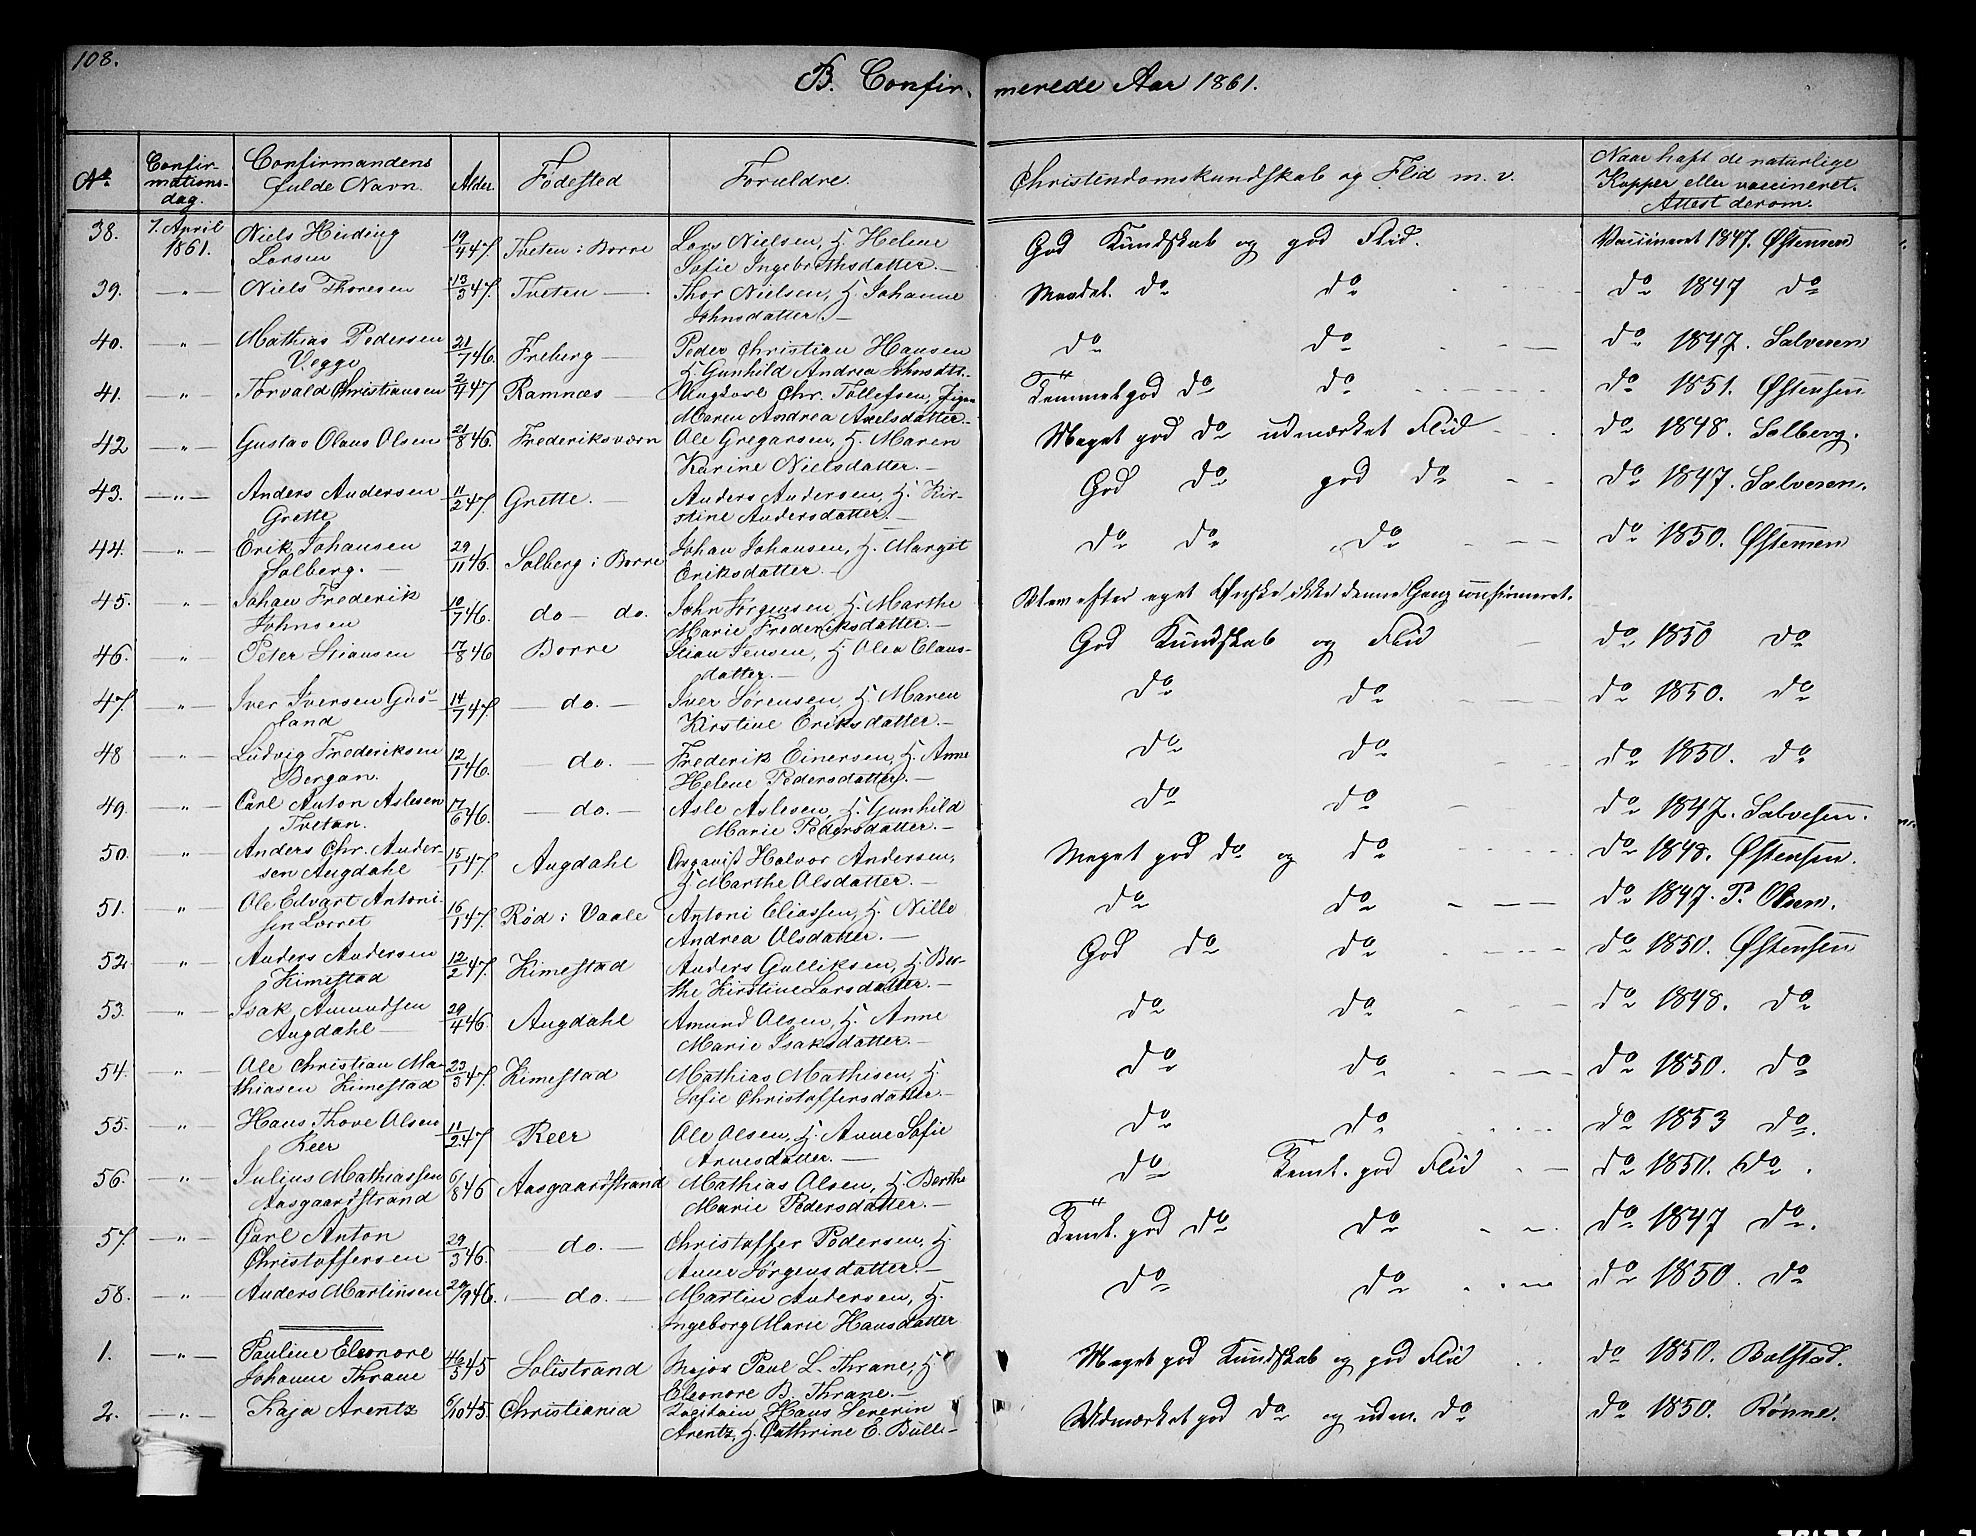 108.
B. Confirmerede Aar 1861.
No. Confirmationsdag. Confirmandens fulde Navn. Alder. Fødested Foreldre. Christendomskundskab og Flid m. v. Naar haft de naturlige Kopper eller vaccineret. Attest derom.
38. 7. April 1861. Niels Larsen 19/4 47. Tveten i Borre Lars Nielsen, H. Helene Sofie Ingebrethsdatter.— God Kundskab og god Flid. Vaccineret 1847. Østensen
39. —"— Niels Thoresen 13/3 47. Tveten — Thor Nielsen, H. Johanne Johnsdatter.— do do do 1847 do
40. " Mathias Pedersen Vegge 21/7 46. Freberg — Peder Christian Hansen H. Gunhild Andrea do do do 1847. Salvesen
41. " Torvald Christiansen 2/4 47 Ramnæs — Chr. Tollefsen, Maren Andrea Axelsdatter.— Temmet god do do do 1851. Østensen
42 —"— Gustav Olaus Olsen 21/8 46. Frederiksværn Ole Gregarsen, H. Maren Karine Nielsdatter.— Meget god do udmærket Flid do 1848. Solberg.
43. —"— Anders Andersen Grette 11/2 47. Grette. — Anders Andersen, H. Kirstine Andersdatter.— God do god do do 1847. Salvesen.
44. —"— Erik Johansen Solberg.— 29/11 46. Solberg i Borre Johan Johansen, H. Margit Eriksdatter.— do do do do 1850. Østensen
45. "— Johan Frederik Johnsen 10/7 46. do — do. John Jørgensen, H. Marthe Marie Frederiksdatter.— Blev efter eget Ønske ikke denne Gang confirmeret.
46. " Peter Stiansen 17/8 46 Borre Stian Jensen, H. Olea Clausdatter.— God Kundskab og Flid do 1850 do
47. " Iver Iversen Gusland 14/7 47. — do. — Iver Sørensen, H. Maren Kirstine Eriksdatter.— do do do 1850. do
48 " Ludvig Frederiksen Bergan. 12/1 46. — do. — Frederik Einersen, H. Anne Helene Pedersdatter.— do do do 1850. do
49. " Carl Anton Aslesen Tvetan. 17/6 46. — do. — Asle Aslesen, H. Gunhild Marie Pedersdatter.— do do do 1847. Salvesen.
50. " Anders Chr. Andersen Augdahl 15/1 47. Augdahl Halvor Andersen, H. Marthe Olsdatter.— Meget god do og do do 1848. Østensen.
51. —"— Ole Edvart Antonisen 16/1 47. Rød i Vaale Antoni Eliassen, H. Nille Andrea Olsdatter.— do do do 1847. P. Olsen.
52 " Anders Andersen Kimestad 12/2 47. Kimestad Anders Gulliksen, H. Berthe Kirstine Larsdatter.— God do do do 1850. Østensen
53. " Isak Amundsen Augdahl— 29/4 46. Augdahl Amund Olsen, H. Anne Marie Isaksdatter.— do do do 1848. do
54. —"— Ole Christian Mathiasen Kimestad 23/3 47. Kimestad Mathias Mathisen, H. Sofie Christoffersdatter.— do do do 1850. do
55. " Hans Thove Olsen Reer 11/2 47 Reer Ole Olsen, H. Anne Sofie Arnesdatter.— do do do 1853 do.
56. —"— Julius Mathiassen Aasgaardsstrand 6/8 46 Aasgaardsstrand Mathias Olsen, H. Berthe Marie Pedersdatter.— do Temt. god Flid do 1850. do.
57. —"— Carl Anton Christoffersen 29/3 46. do. — Christoffer Pedersen, H. Anne Jørgensdatter.— Temt. god do do do 1847 do.
58. —"— Anders Martinsen 29/9 46. — do. — Martin Andersen, H. Ingeborg Marie Hansdatter do do do 1850. do
1. —"— Pauline Eleonore Johanne Thrane 5 45 Solistrand Major Paul L. Thrane, H Eleonore B. Thrane.— Meget god Kundskab og god Flid do 1850. Bolstad.
2. —"— Kaja Arentz 6/10 45. Christiania Capitain Hans Severin Arentz, H. Cathrine E. Bull— Udmærket god do og udm. do do 1850. Rønne.